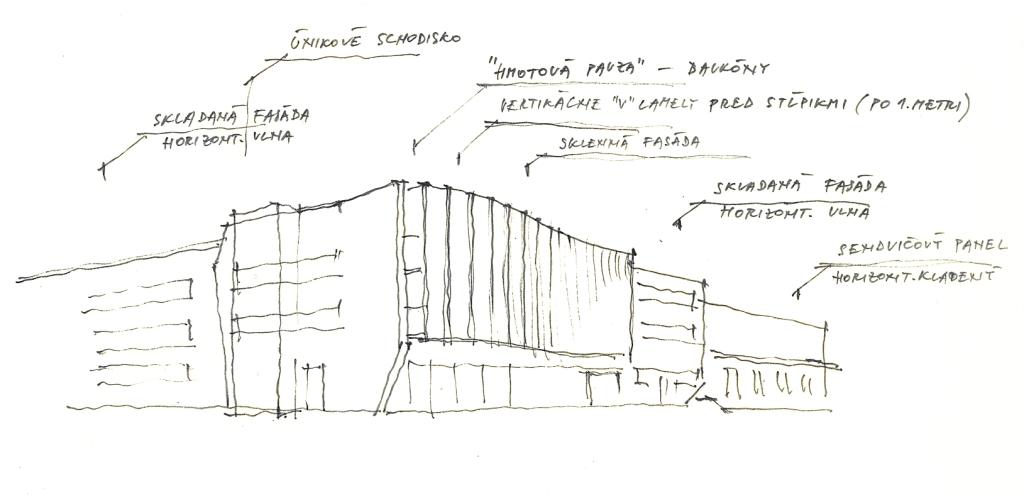 ÚNIKOVÉ SCHODISKO
"HMOTOVÁ PAUZA" — BALKÓNY
SKLADANÁ FASÁDA
HORIZONT. VLNA
VERTIKÁLNE "V" LAMELY PRED STĹPIKMI (PO 1. METRI)
SKLENNÁ FASÁDA
SKLADANÁ FASÁDA
HORIZONT. VLNA
SENDVIČOVÝ PANEL
HORIZONT. KLADENÝ